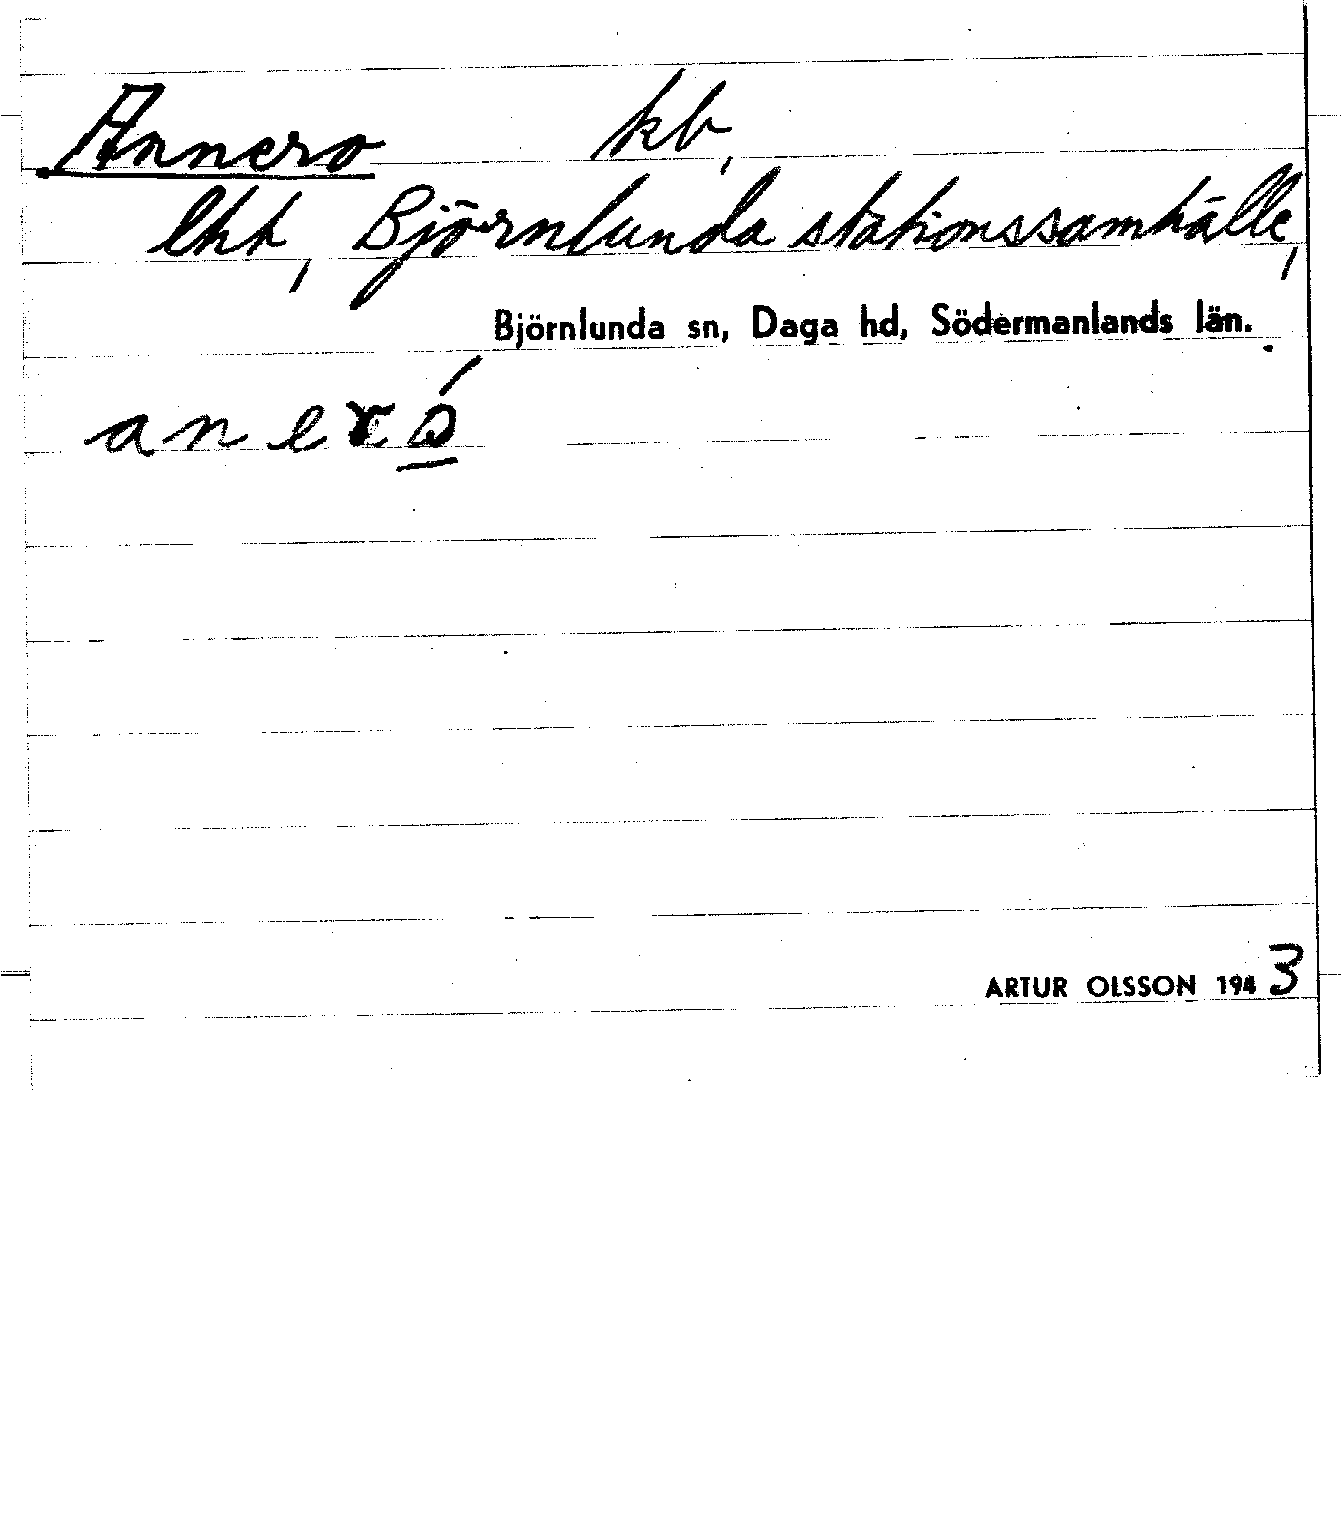 Annero kb,
lht, Björnlunda stationssamhälle,
Björnlunda sn, Daga hd, Södermanlands län.
aneró̲
ARTUR OLSSON 1943